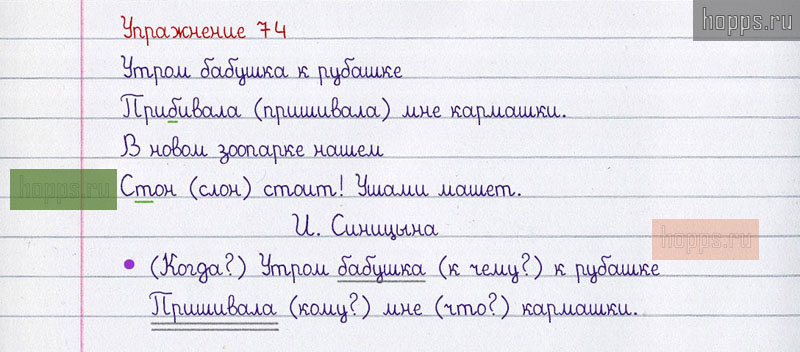 hopps.ru
Упражнение 74
Утром бабушка к рубашке
Прибивала (пришивала) мне кармашки.
В новом зоопарке нашем
hopps.ru
Стон (слон) стоит! Ушами машет.
И. Синицына
hopps.ru
• (Когда?) Утром бабушка (к чему?) к рубашке
Пришивала (кому?) мне (что?) кармашки.